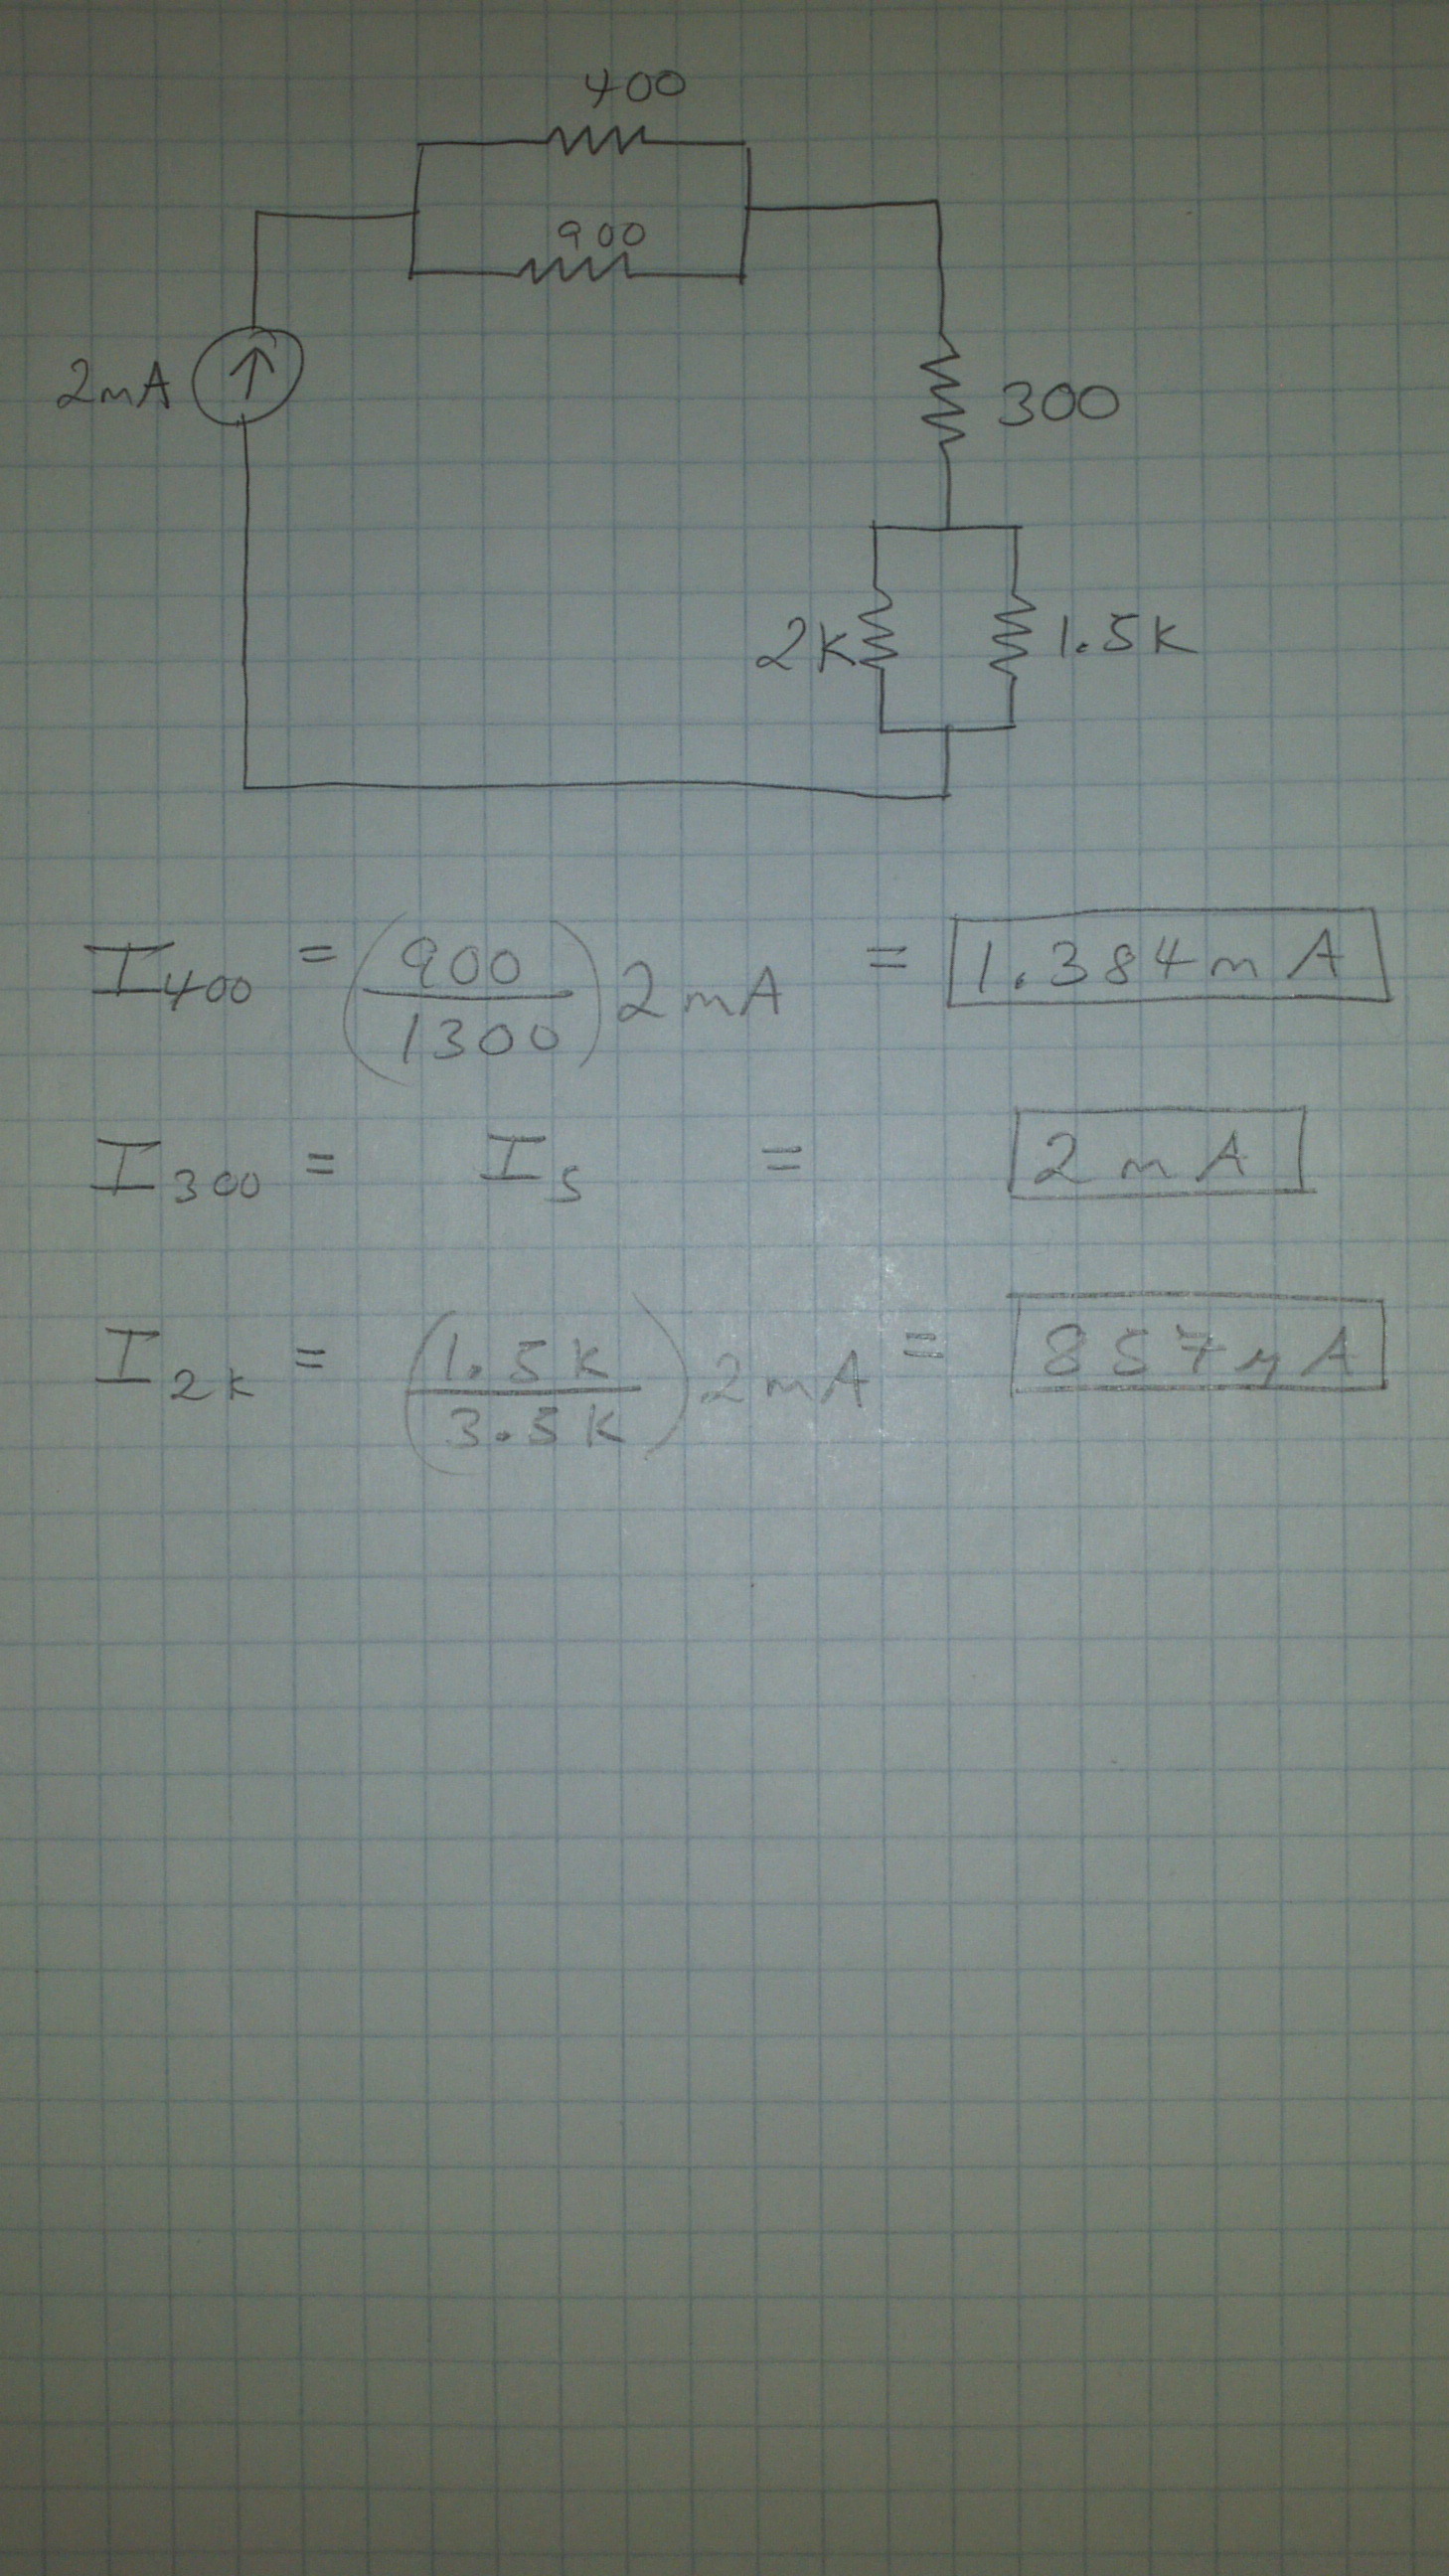 400
900
2mA
300
2K
1.5K
I400 = (900/1300) 2mA = 1.384mA
I300 = Is = 2mA
I2K = (1.5K/3.5K) 2mA = 857μA